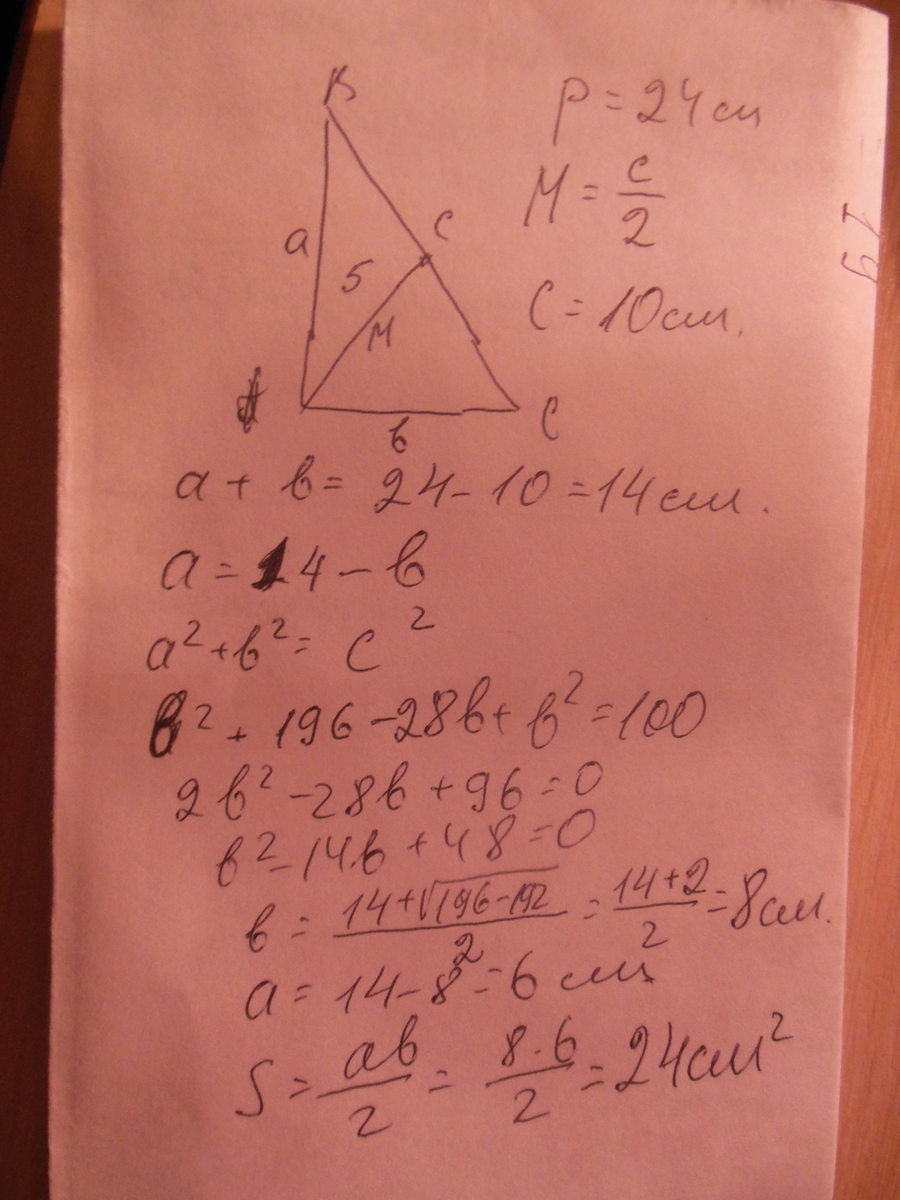 B
P = 24 см
M = c/2
C = 10 см.
a
5
C
M
A
b
C
a + b = 24 - 10 = 14 см.
a = 14 - b
a² + b² = c²
b² + 196 - 28b + b² = 100
2b² - 28b + 96 = 0
b² - 14b + 48 = 0
b = (14+√(196-192))/2 = (14+2)/2 = 8 см.
a = 14 - 8 = 6 см
S = ab/2 = 8·6/2 = 24 см²